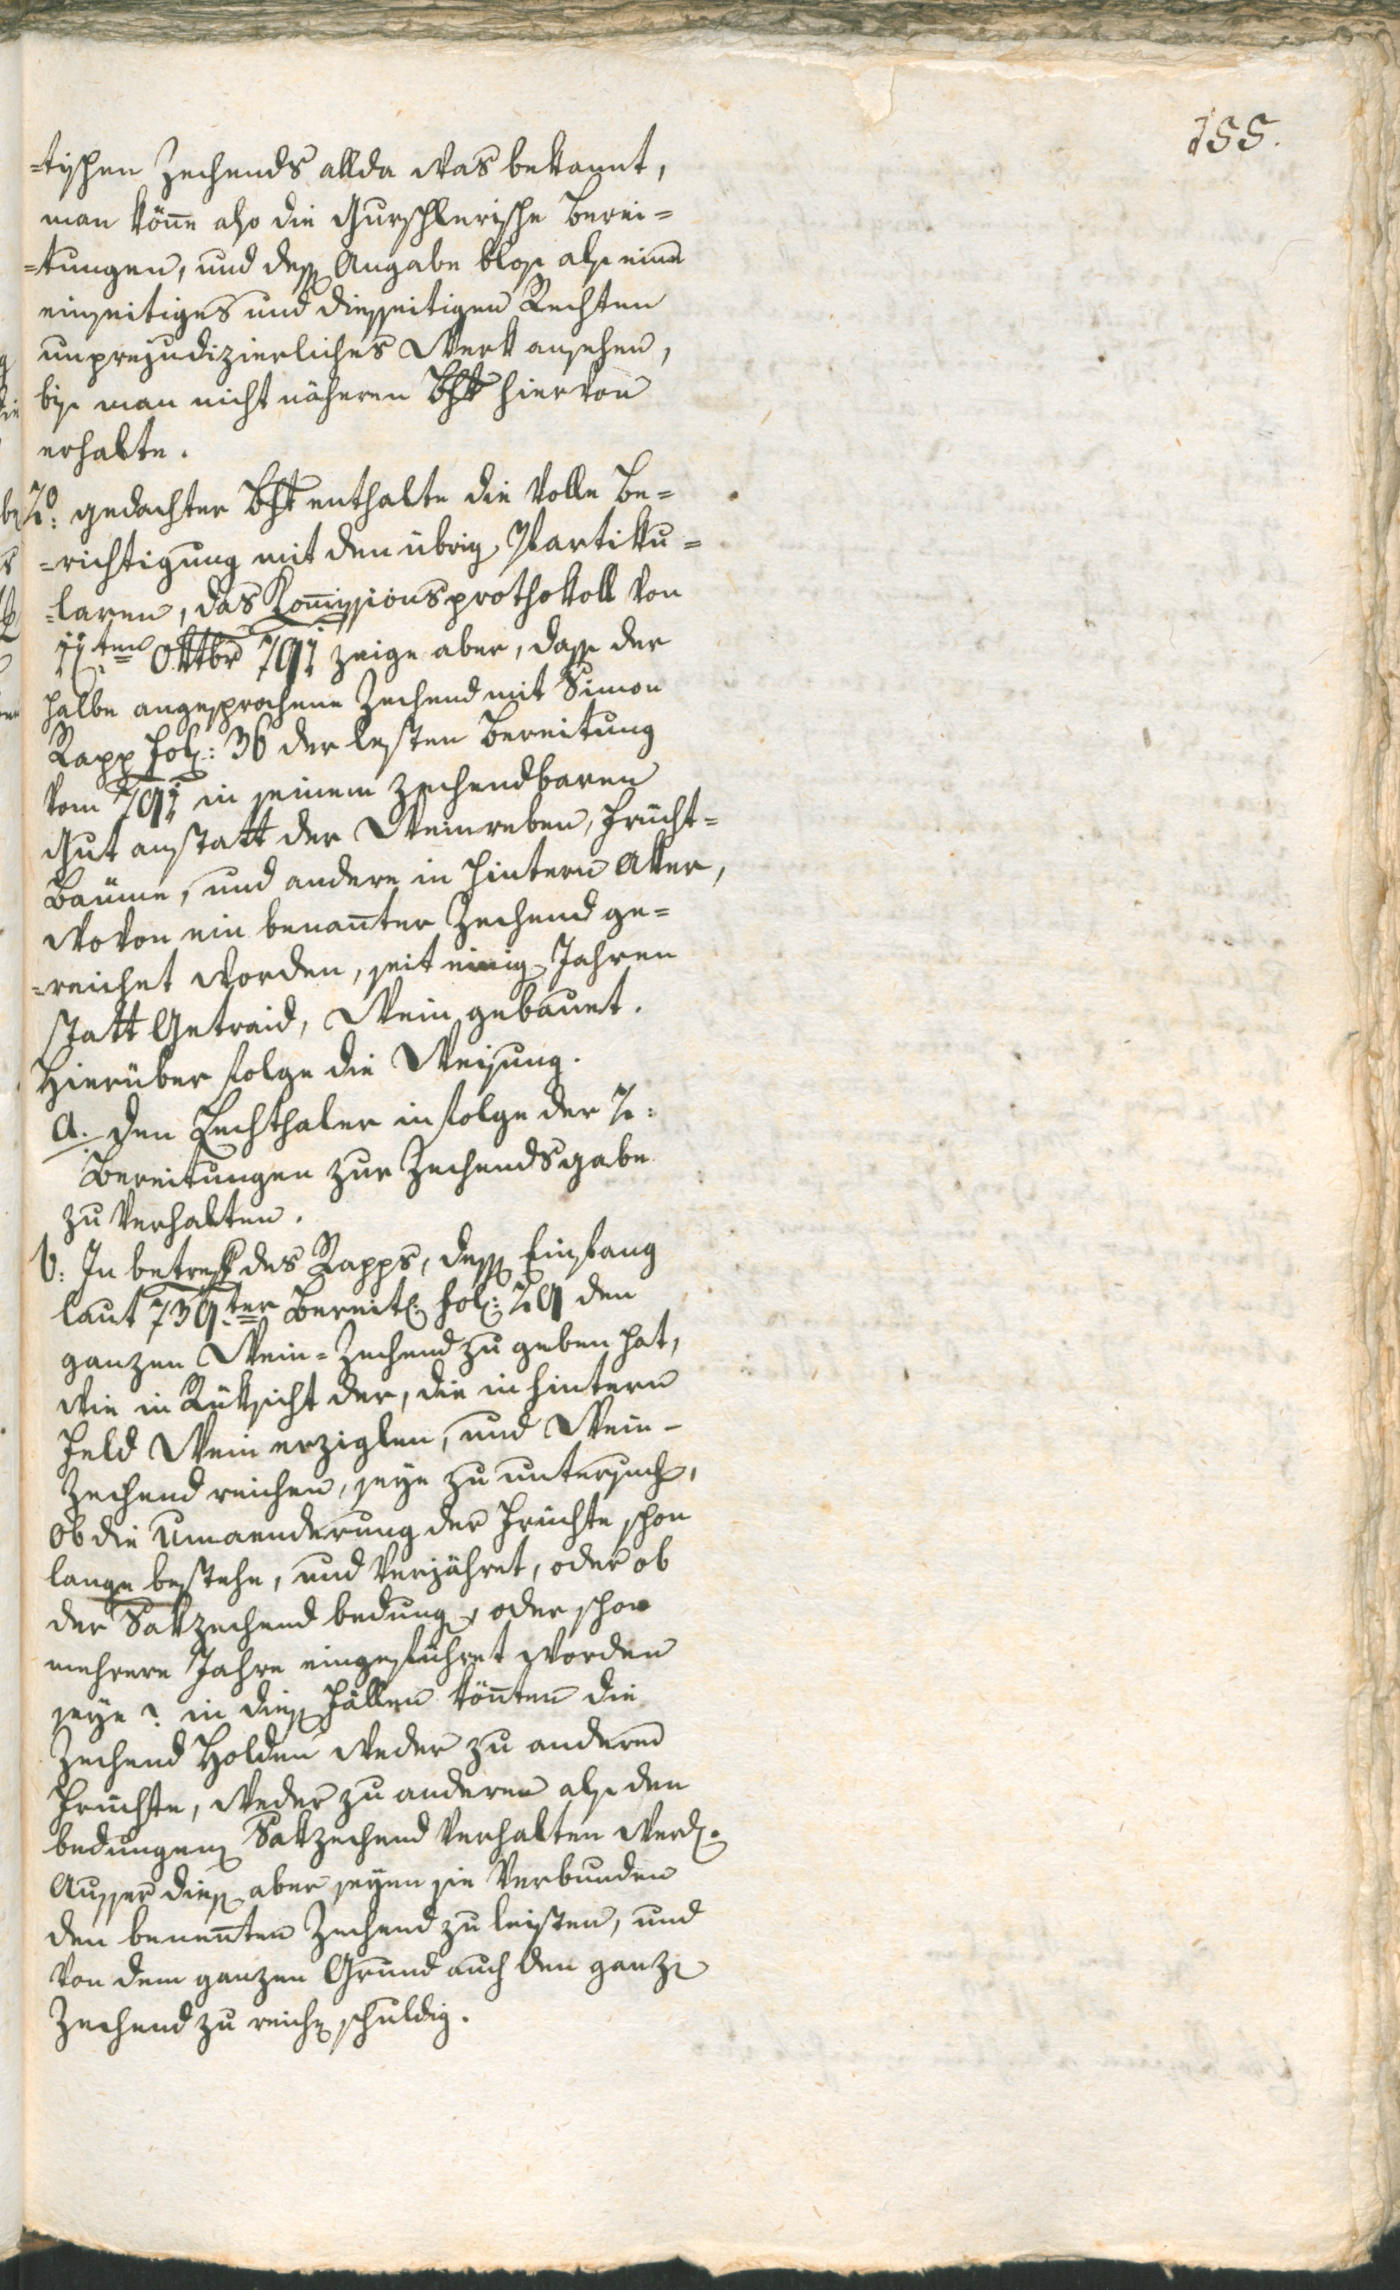 155.
-tischen Zechends allda was bekannt,
man köne also die Gurschlerische Berei-
-tungen, und dess Angabe blos als eine
einseitiges und diesseitigen Rechten
unprejudizierliches Werk ansehen,
bis man nicht näheren Bht hiervon
erhalte.
2o: gedachter Bht enthalte die volle Be-
-richtigung mit den übrig Partiku-
-laren, das Komissionsprothokoll von
11ten Oktbr 791 zeige aber, dass der
halbe angesprochene Zechend mit Simon
Rapp fol: 36 der lesten Bereitung
vom 791 in seinem zechendbaren
Gut anstatt der Weinreben, Frücht-
Bäume, und andere in hintern Aker,
wovon ein benanter Zechend ge-
-reichet worden, seit einig Jahren
statt Getraid, Wein gebauet.
Hierüber folge die Weisung.
a. den Lechthaler in folge der 2:
Bereitungen zur Zechendsgabe
zu verhalten.
b: In betreff des Rapps, dess Einfang
laut 739ter Bereit: fol: 29 den
ganzen Wein-Zechend zu geben hat,
wie in Rüksicht der, die in hintern
Feld Wein erziglen, und Wein-
Zechend reichen, seye zu untersuch,
ob die Umaenderung der Früchte schon
lange bestehe, und verjähret, oder ob
der Sakzechend bedung, oder schon
mehrere Jahre eingeführet worden
seye? in dies Fällen könten die
Zechend Holden weder zu anderen
Früchte, weder zu anderen als den
bedungen Sakzechend verhalten werd.
Ausser dies aber seyen sie verbunden
den benenten Zechend zu leisten, und
von dem ganzen Grund auch den ganz
Zechend zu reich schuldig.